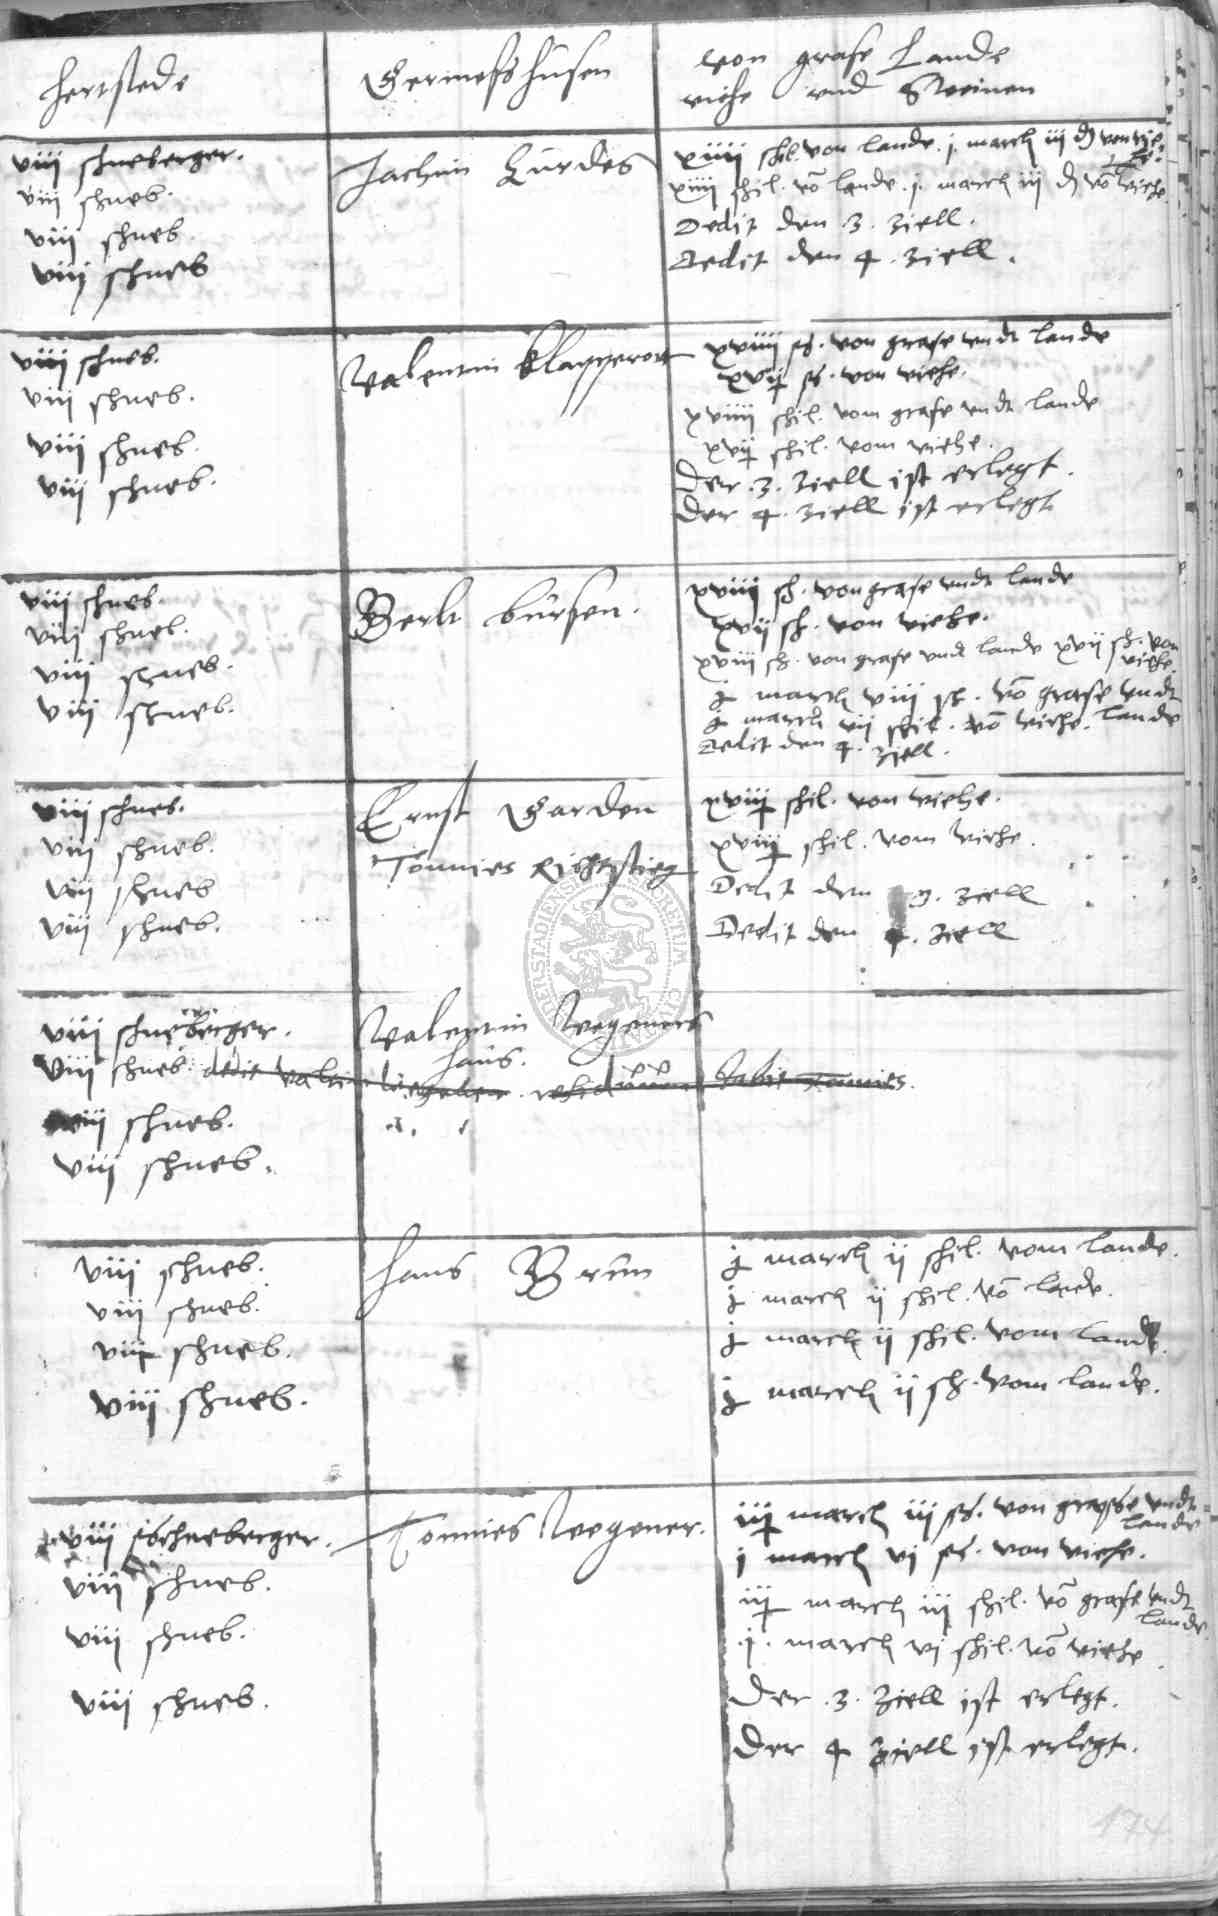 Hertstede
Germesshusen
von grase Lande
viehe vnd Sweinen
viii schneberger.
viii schneb.
viii schneb.
viii schneb
Jachim Lurdes
xiiii schil. von lande. j. march iii
xiiii schil. võ lande. j. march iii võ viehe
Dedit den .3. ziell.
Dedit den 4. ziell.
viii schneb.
viii schneb.
viii schneb.
viii schneb.
Valentin Klapperott
xviiij sch. von grase vndt lande
xvij sch. von viehe.
xviiij schil. vom grase vndt lande
xvij schil. vom viehe.
Der .3. ziell ist erlegt.
Der 4. ziell ist erlegt
viii schneb.
viii schneb.
viii schneb.
viii schneb.
Berlt bursen.
xviii sch. von grase vndt lande
xvii sch. von viehe.
xviii sch. von grase vnd lande xvii sch. von
viehe.
j march viii sch. võ grase vndt
j march vii schil. võ viehe. lande
Dedit den 4. ziell.
viii schneb.
viii schneb.
viii schneb
viii schneb.
Ernst Garden
Tonnies Richtstieg
xviij schil. von viehe.
xviij schil. vom viehe.
Dedit den 3. ziell
Dedit den 4. ziell
viii schneberger.
Valentin Wegeners
haus.
viii schneb. dedit
viii schneb.
viii schneb.
viii schneb.
viii schneb.
viij schneb.
viii schneb.
Hans Brun
j march ij schil. vom lande.
j march ij schil. võ lande.
j march ij schil. vom lande.
j march ij sch. vom lande.
viii schneberger.
viii schneb.
viii schneb.
viii schneb.
Tonnies Wegener.
iij march iij sch. von grasse vndt
lande
j march vj sch. von viehe.
iij march iij schil. võ grase vndt
lande
.j. march vj schil. võ viehe
Der .3. ziell ist erlegt.
Der 4 ziell ist erlegt.
174